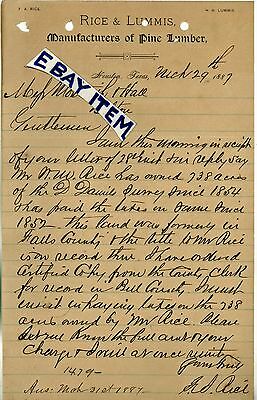 F. A. RICE.
H. H. LUMMIS.
RICE & LUMMIS,
Manufacturers of Pine Lumber,
Texas, Mch 29th 1887
EBAY ITEM
Gentlemen
I am this morning in receipt
of your letter of 28th inst & in reply say
Mr W. M. Rice has owned 738 acres
of the D. David Survey since 1854
& has paid the taxes in same since
1852 – This land was formerly in
Falls County & the title to Mr Rice
is on record there I have ordered
Certified Copy from the County Clerk
for record in Bell County I must
insist in paying taxes on the 738
acres owned by Mr Rice. Please
let me know the full amt & your
Charge & I will at once remit
Yours truly
1479 –
Ans: Mch 31st 1887 –
Rice